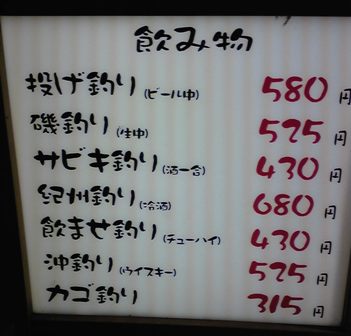 飲み物
投げ釣り(ビール中) 580円
磯釣り(生中) 525円
サビキ釣り(酒一合) 430円
紀州釣り(冷酒) 680円
飲ませ釣り(チューハイ) 430円
沖釣り(ウイスキー) 525円
カゴ釣り 315円